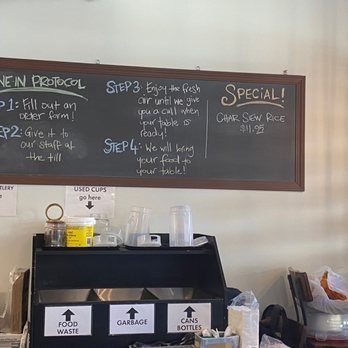 NE IN PROTOCOL
P 1: Fill out an
order form!
2: Give it to
our staff at
the till
STEP 3: Enjoy the fresh
air until we give
you a call when
your table is
ready!
STEP 4: We will bring
your food to
your table!
SPECIAL!
CHAR SIEW RICE
$11.95
USED CUPS
go here
FOOD
WASTE
GARBAGE
CANS
BOTTLES